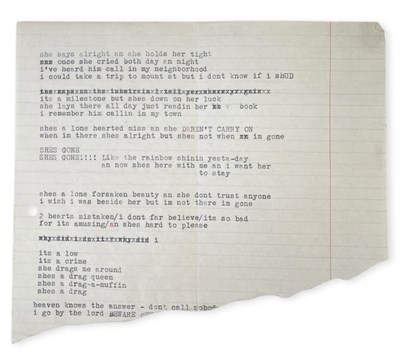 she says alright an she holds her tight
once she cried both day an night
i've heard him call in my neighborhood
i could take a trip to mount at but i dont know if i shUD
its a milestone but shes down on her luck
she lays there all day just readin her book
i remember him callin in my town
shes a lone hearted miss an she DAREN'T CARRY ON
when im there shes alright but shes not when im gone
SHES GONE
SHES GONE!!!! Like the rainbow shinin yesta-day
an now shes here with me an i want her
to stay
shes a lone forsaken beauty an she dont trust anyone
i wish i was beside her but im not there im gone
2 hearts mistaken/i dont far believe/its so bad
for its amusing/an shes hard to please
i
its a low
its a crime
she drags me around
shes a drag queen
shes a drag-a-muffin
shes a drag
heaven knows the answer - dont call nobod
i go by the lord BEWARE